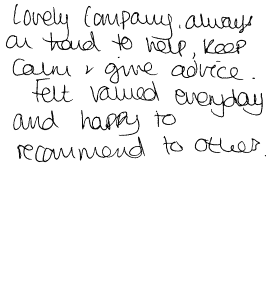 Lovely Company, always
on hand to help, keep
calm & give advice.
Felt valued everyday
and happy to
recommend to others.